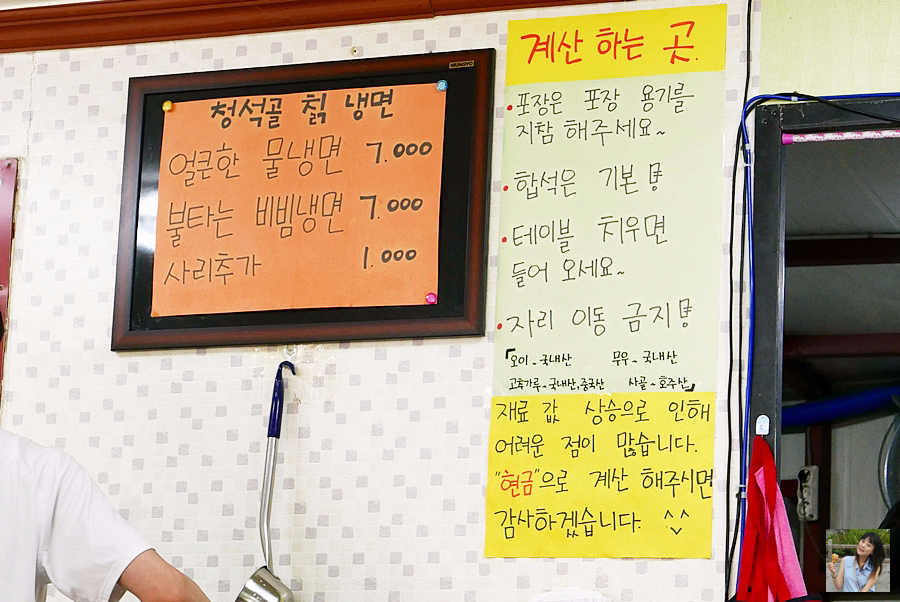 MUNGYO
청석골 칡 냉면
얼큰한 물냉면 7.000
불타는 비빔냉면 7.000
사리추가 1.000
계산 하는 곳.
•포장은 포장 용기를
지참 해주세요~
•합석은 기본!
•테이블 치우면
들어 오세요~
•자리 이동 금지!
「오이 ~ 국내산 무우 ~ 국내산
고춧가루 ~ 국내산,중국산 사골 ~ 호주산」
재료 값 상승으로 인해
어려운 점이 많습니다.
"현금"으로 계산 해주시면
감사하겠습니다. ^^